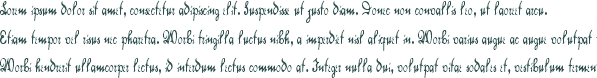 Lorem ipsum dolor sit amet, consectetur adipiscing elit. Suspendisse ut justo diam. Donec non convallis leo, ut laoreet arcu.
Etiam tempor vel risus nec pharetra. Morbi fringilla luctus nibh, a imperdiet nisl aliquet in. Morbi varius augue ac augue volutpat
Morbi hendrerit ullamcorper lectus, id interdum lectus commodo at. Integer nulla dui, volutpat vitae sodales et, vestibulum fermen